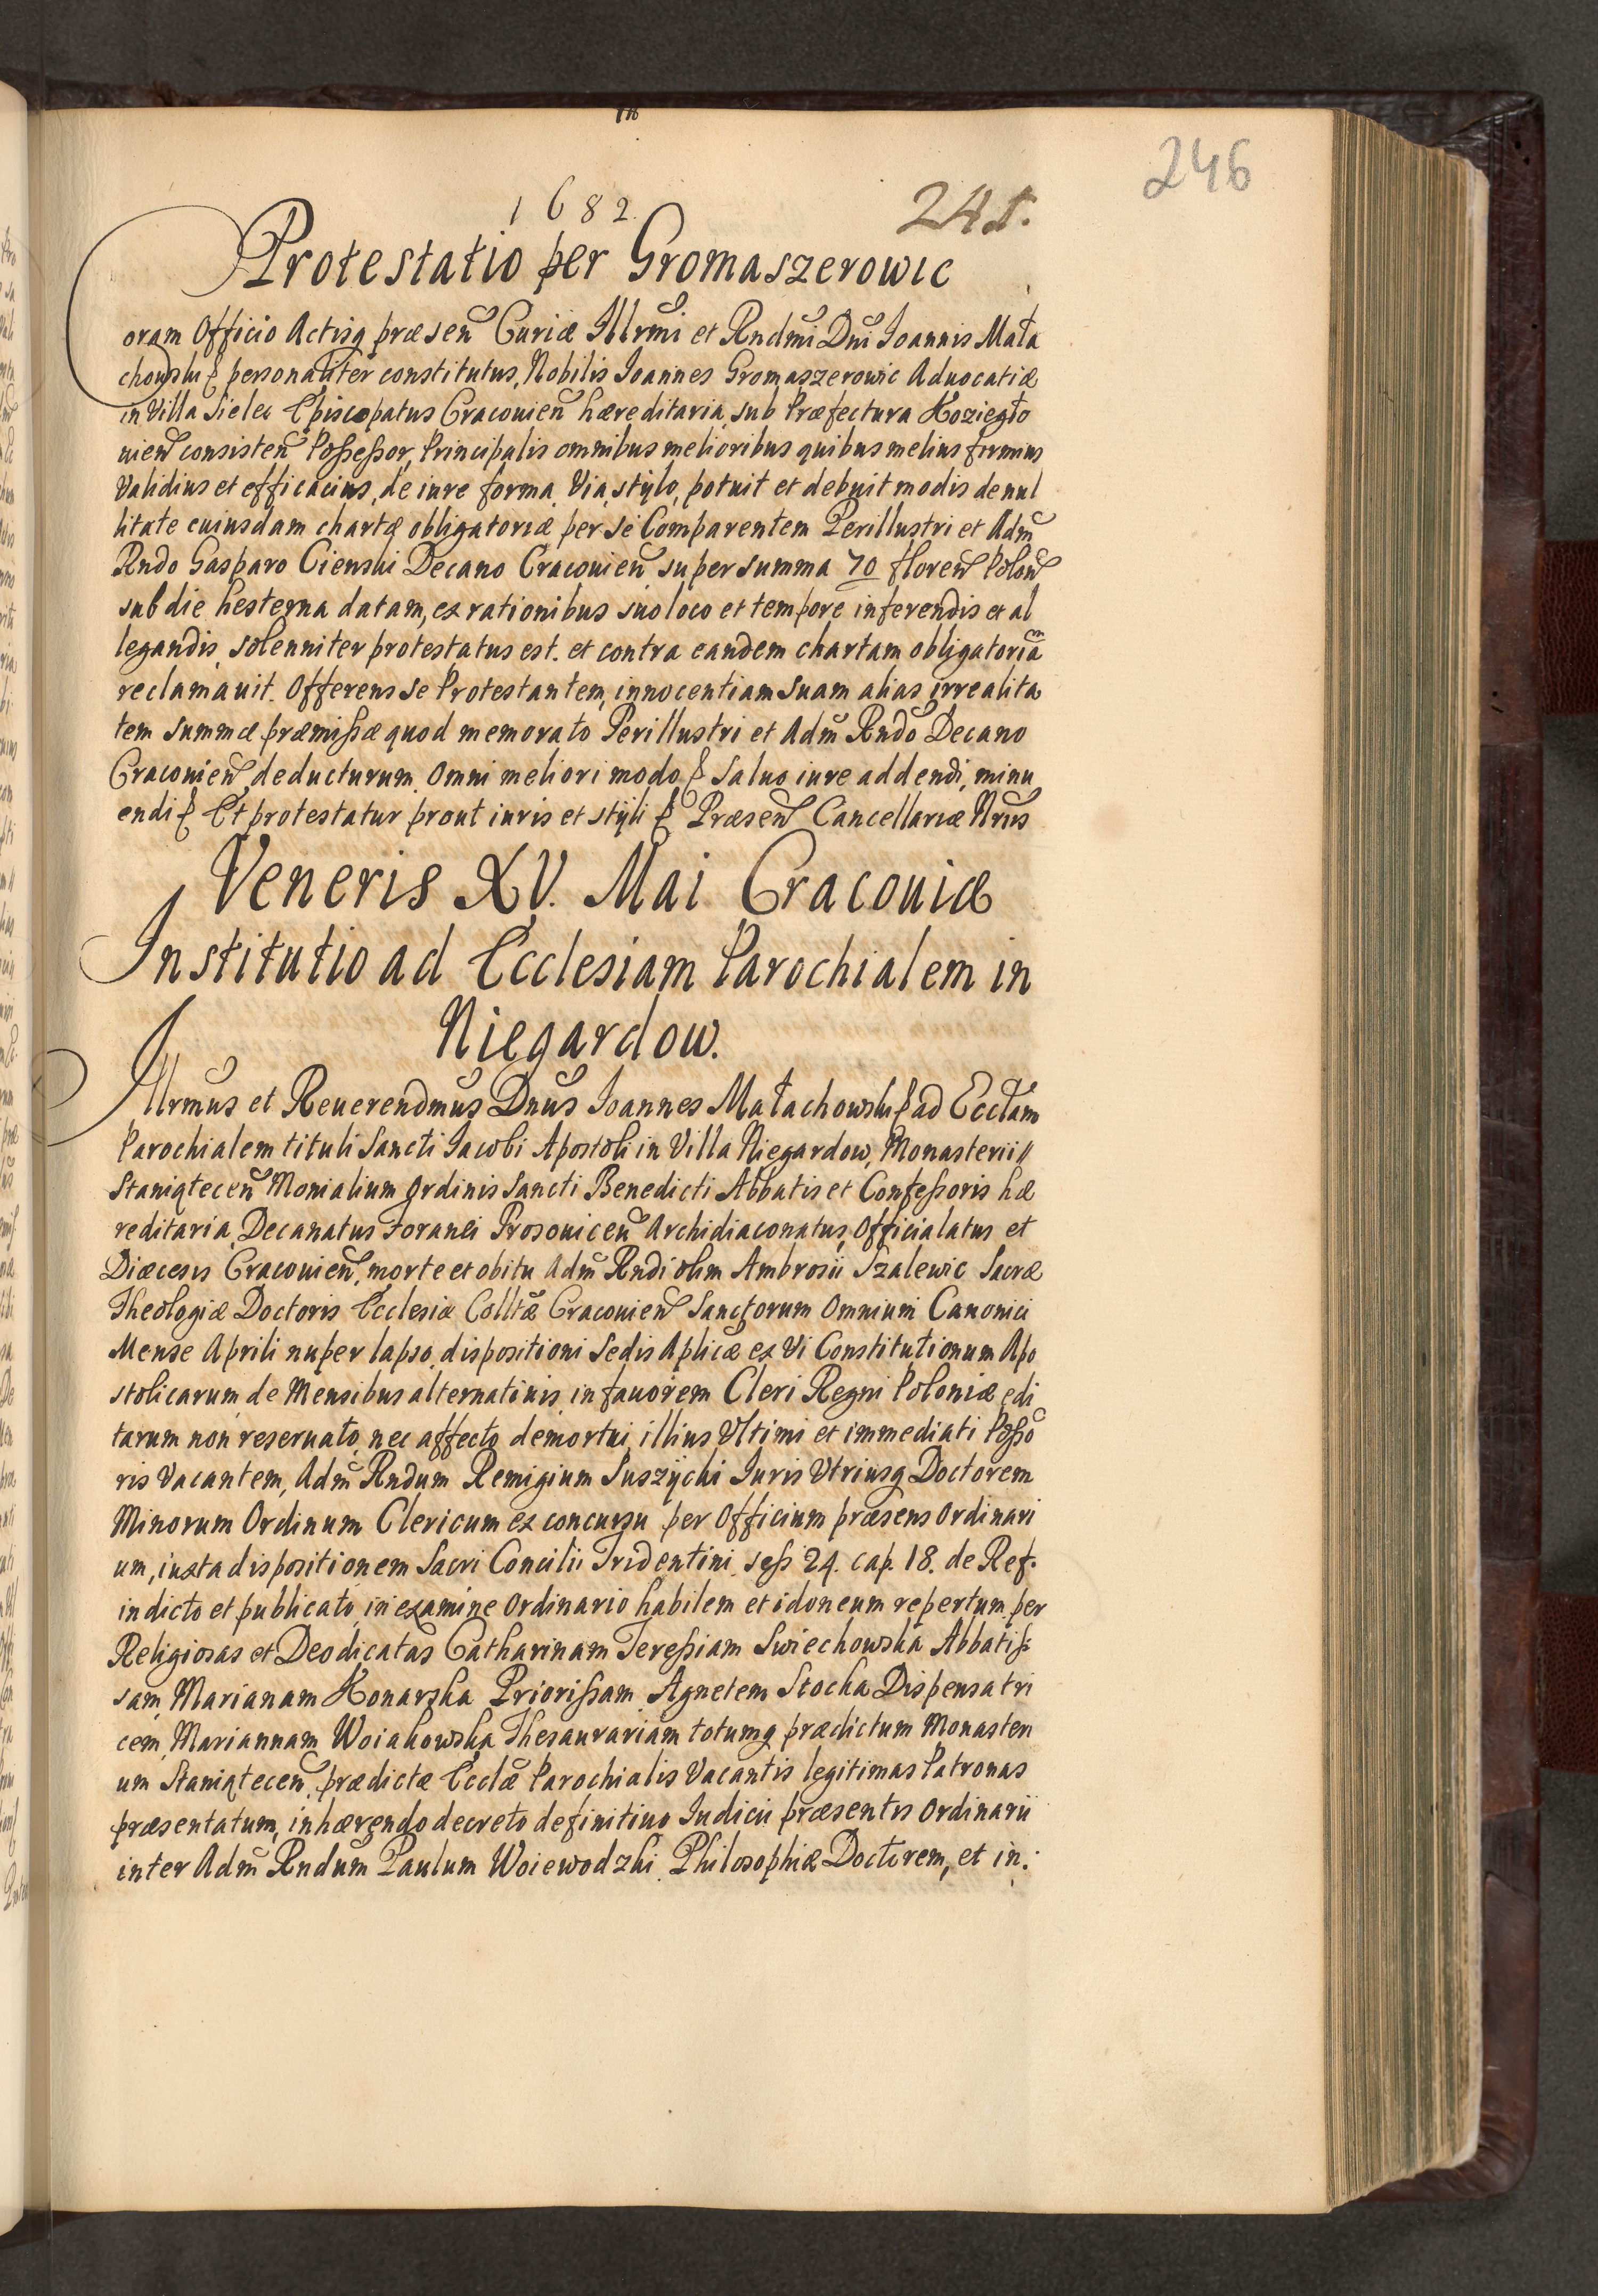 246
1682.
245.
Protestatio per Gromaszerowic
Coram Officio Actisq præsen̄ Curiæ Illrmi et Rndmi Dni Ioannis Mała
chowski & personaliter constitutus, Nobilis Ioannes Gromaszerowic Aduocatiæ
in Villa Sielec Episcopatus Cracouien̄ hæreditaria, sub Præfectura Koziegło
uien̄ consisten̄ Poßeßor, Principalis omnibus melioribus quibus melius firmius
Validius et efficacius, de iure forma, Via, stÿlo, potuit et debuit modis de nul
litate cuiusdam chartæ obligatoriæ per se Comparentem Perillustri et Adm̄
Rndo Gasparo Cienski Decano Cracouien̄ super summa 70 floren̄ Polon̄
sub die hesterna datam, ex rationibus suo loco et tempore inferendis et al
legandis, solenniter protestatus est. et contra eandem chartam obligatoriam
reclamauit. Offerens se Protestantem, innocentiam suam alias irrealita
tem summæ præmißæ quod memorato Perillustri et Adm̄ Rndo Decano
Cracouien̄ deducturum. Omni meliori modo & Saluo iure addendi, minu
endi & Et protestatur prout iuris et stÿli & Præsen̄ Cancellariæ Nrius
Veneris XV. Mai Cracouiæ
Institutio ad Ecclesiam Parochialem in
Niegardow.
Illrmus et Reuerendmus Dnus Ioannes Małachowski & ad Ecclam
Parochialem tituli Sancti Iacobi Apostoli in Villa Niegardow, Monasterii
Staniątecen̄ Monialium Ordinis Sancti Benedicti Abbatis et Confeßoris hæ
reditaria, Decanatus Foranei Prosouicen̄ Archidiaconatus, Officialatus et
Diæcesis Cracouien̄, morte et obitu Adm̄ Rndi olim Ambrosii Szalewic Sacræ
Theologiæ Doctoris Ecclesiæ Colltæ Cracouien̄ Sanctorum Omnium Canonici
Mense Aprili nuper lapso, dispositioni Sedis Aplicæ ex Vi Constitutionum Apo
stolicarum de Mensibus alternatiuis in fauorem Cleri Regni Poloniæ edi
tarum non reseruato, nec affecto demortui, illius Vltimi et immediati Poßo
ris Vacantem, Adm̄ Rndum Remigium Suszÿcki Iuris Vtriusq Doctorem
Minorum Ordinum Clericum ex concursu per Officium præsens Ordinari
um, iuxta dispositionem Sacri Concilii Tridentini, seß 24. cap. 18. de Ref.
indicto et publicato, in examine Ordinario habilem et idoneum repertum, per
Religiosas et Deo dicatas Catharinam Tereßiam Swiechowska Abbatiß
sam, Marianam Konarska Priorißam, Agnetem Stocka Dispensatri
cem, Mariannam Woiakowska Thesaurariam totumq prædictum Monasteri
um Staniątecen̄ prædictæ Ecclæ Parochialis Vacantis legitimas Patronas
præsentatum, inhærendo decreto definitiuo Iudicii præsentis Ordinarii
inter Adm̄ Rndum Paulum Woiewodzki Philosophiæ Doctorem, et in: